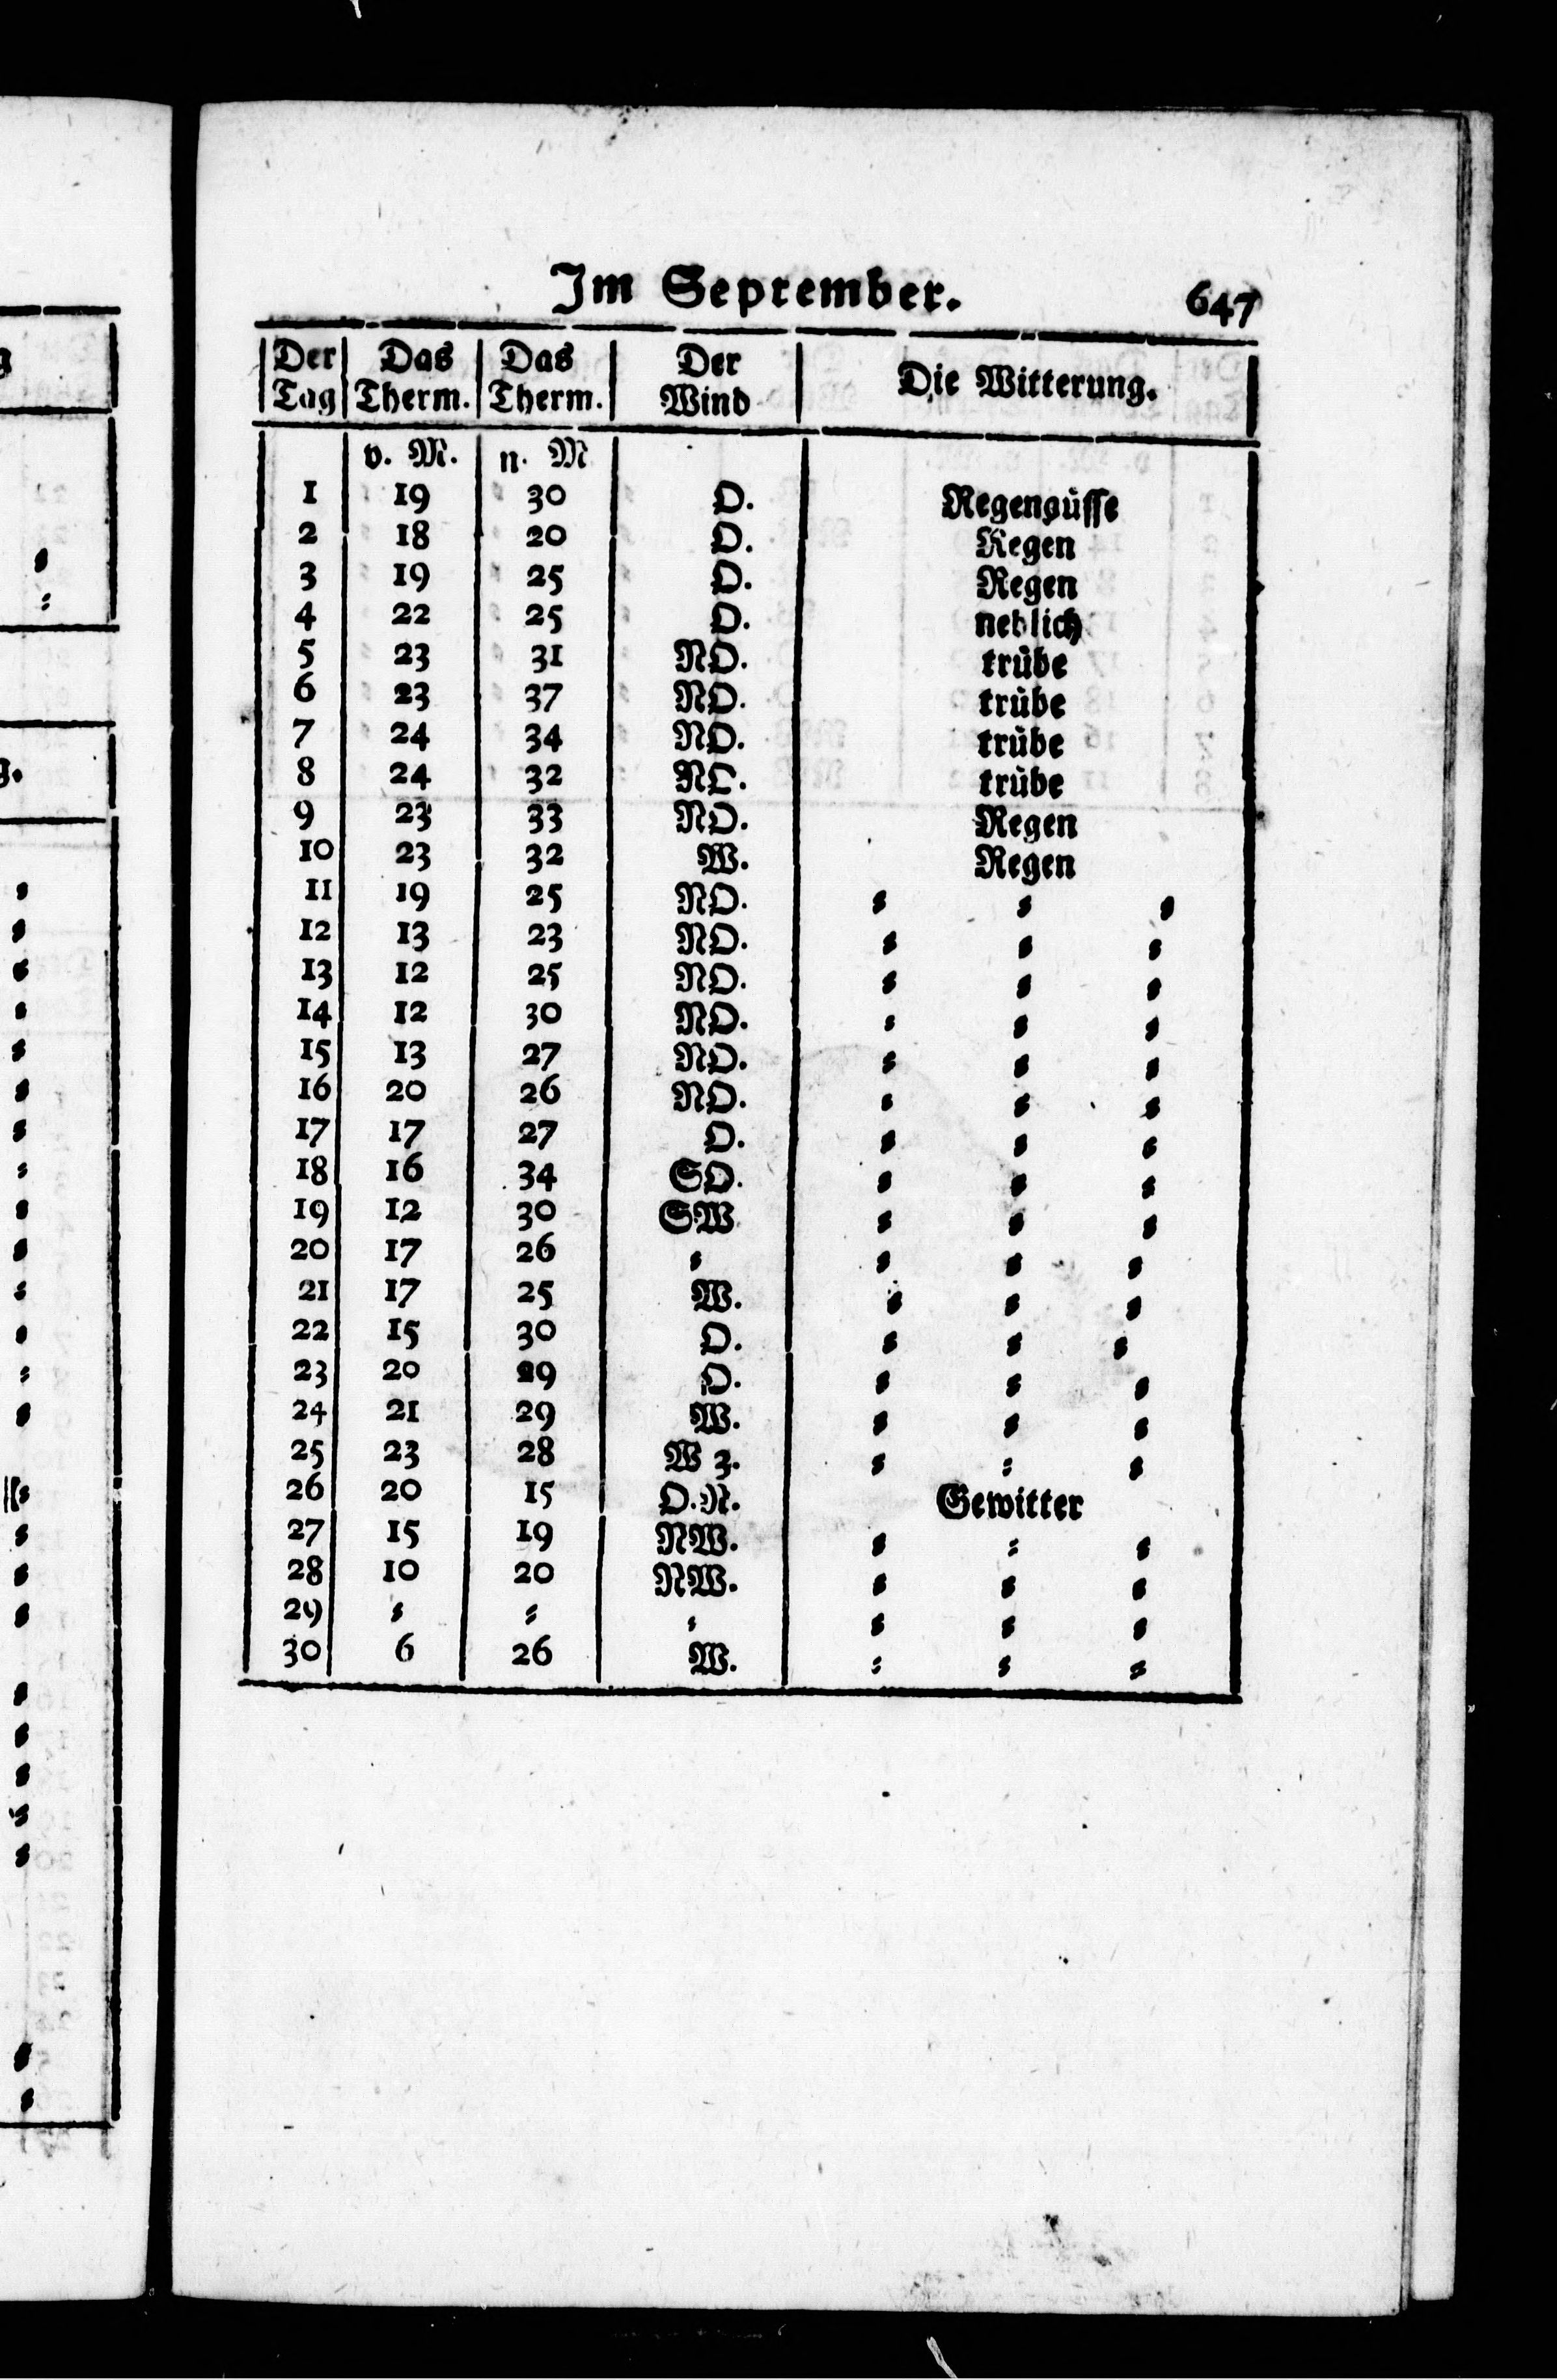 Im September. 647
Der Tag | Das Therm. | Das Therm. | Der Wind | Die Witterung.
v. M. | n. M
1 | 19 | 30 | O. | Regengüsse
2 | 18 | 20 | O. | Regen
3 | 19 | 25 | O. | Regen
4 | 22 | 25 | O. | neblich
5 | 23 | 31 | NO. | trübe
6 | 23 | 37 | NO. | trübe
7 | 24 | 34 | NO. | trübe
8 | 24 | 32 | NO. | trübe
9 | 23 | 33 | NO. | Regen
10 | 23 | 32 | W. | Regen
11 | 19 | 25 | NO. | ⸗ ⸗ ⸗
12 | 13 | 23 | NO. | ⸗ ⸗ ⸗
13 | 12 | 25 | NO. | ⸗ ⸗ ⸗
14 | 12 | 30 | NO. | ⸗ ⸗ ⸗
15 | 13 | 27 | NO. | ⸗ ⸗ ⸗
16 | 20 | 26 | NO. | ⸗ ⸗ ⸗
17 | 17 | 27 | O. | ⸗ ⸗ ⸗
18 | 16 | 34 | SO. | ⸗ ⸗ ⸗
19 | 12 | 30 | SW | ⸗ ⸗ ⸗
20 | 17 | 26 | ⸗ | ⸗ ⸗ ⸗
21 | 17 | 25 | W. | ⸗ ⸗ ⸗
22 | 15 | 30 | O. | ⸗ ⸗ ⸗
23 | 20 | 29 | O. | ⸗ ⸗ ⸗
24 | 21 | 29 | W. | ⸗ ⸗ ⸗
25 | 23 | 28 | W 3. | ⸗ ⸗ ⸗
26 | 20 | 15 | O.N. | Gewitter
27 | 15 | 19 | NW. | ⸗ ⸗ ⸗
28 | 10 | 20 | NW. | ⸗ ⸗ ⸗
29 | ⸗ | ⸗ | ⸗ | ⸗ ⸗ ⸗
30 | 6 | 26 | W. | ⸗ ⸗ ⸗